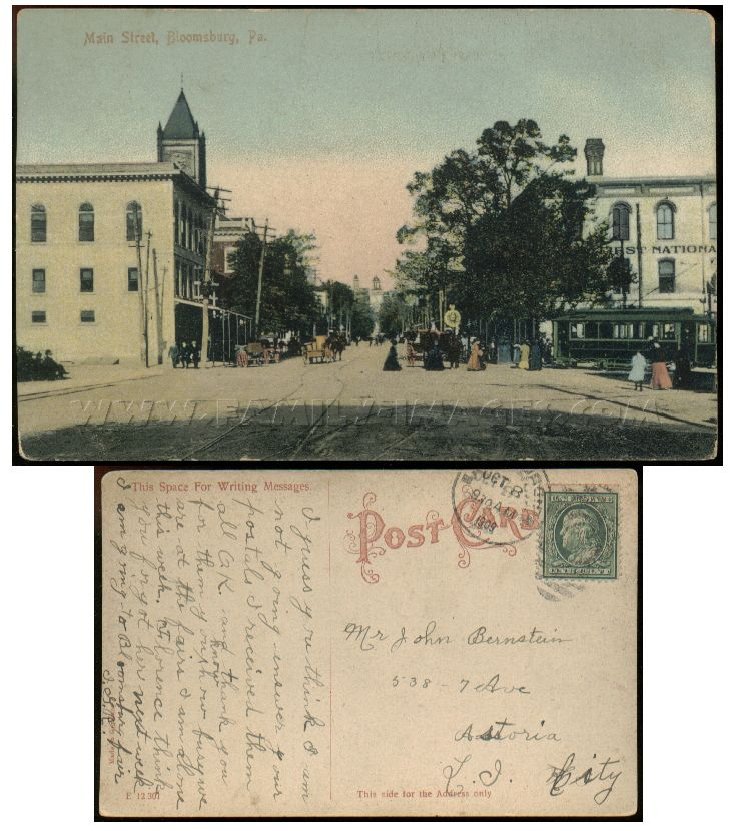 Main Street, Bloomsburg, Pa.
RST NATIONA
WWW.FAMILY-IMAGES.COM
This Space For Writing Messages.
I guess you think I am
not going answer your
postals I received them
all O.K. and thank you
for them you know
how busy we
are at the fairs I am alone
this week. Florence think
you forgot her next week
I am going to Bloomsburg fair
E 12301
POST CARD
OCT 8
1909
Mr John Bernstein
538 - 7 Ave
Astoria
L. I. City
This side for the Address only